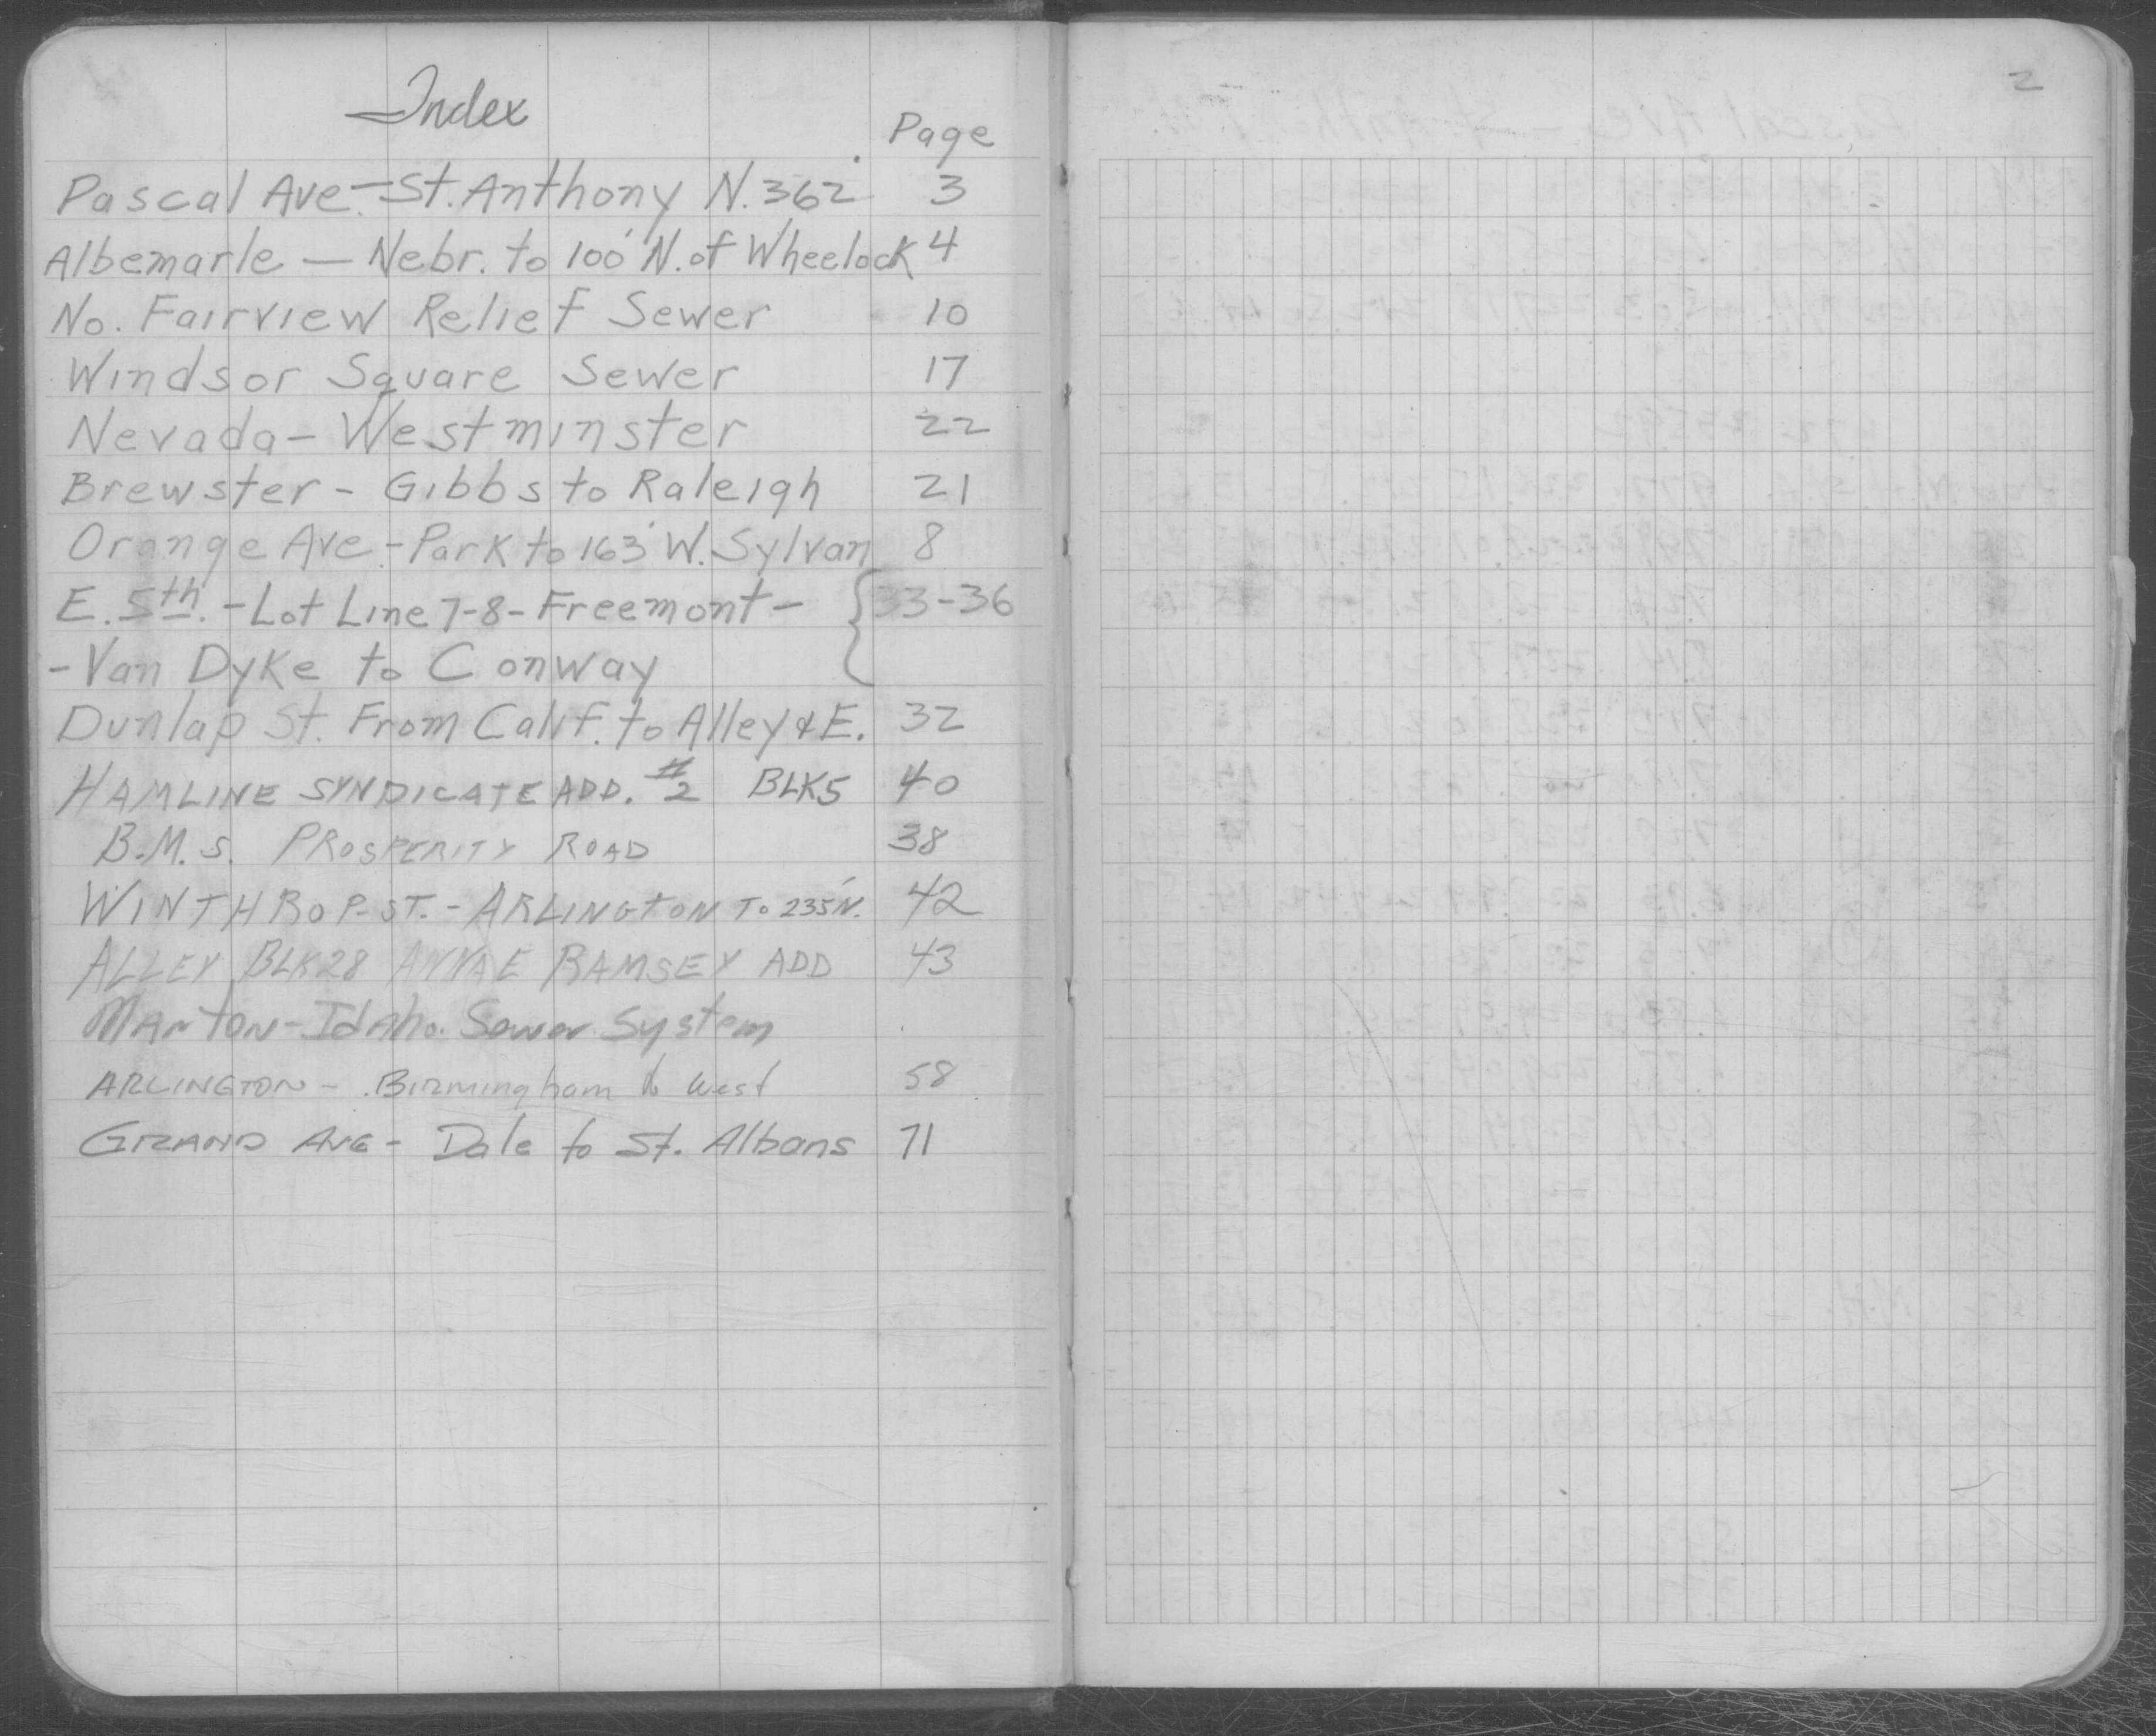 Index
Page
Pascal Ave. - St. Anthony N. 362' 3
Albemarle — Nebr. to 100' N. of Wheelock 4
No. Fairview Relief Sewer 10
Windsor Square Sewer 17
Nevada - Westminster 22
Brewster - Gibbs to Raleigh 21
Orange Ave. - Park to 163' W. Sylvan 8
E. 5th. - Lot Line 7-8 - Freemont - { 33-36
- Van Dyke to Conway
Dunlap St. From Calif. to Alley & E. 32
HAMLINE SYNDICATE ADD. #2 BLK5 40
B.M.S. PROSPERITY ROAD 38
WINTHROP ST. - ARLINGTON TO 235' N. 42
ALLEY BLK28 ANNA E RAMSEY ADD 43
MARTON - Idaho. Sewer System
ARLINGTON - Birmingham to West 58
GRAND AVE - Dale to St. Albans 71
2